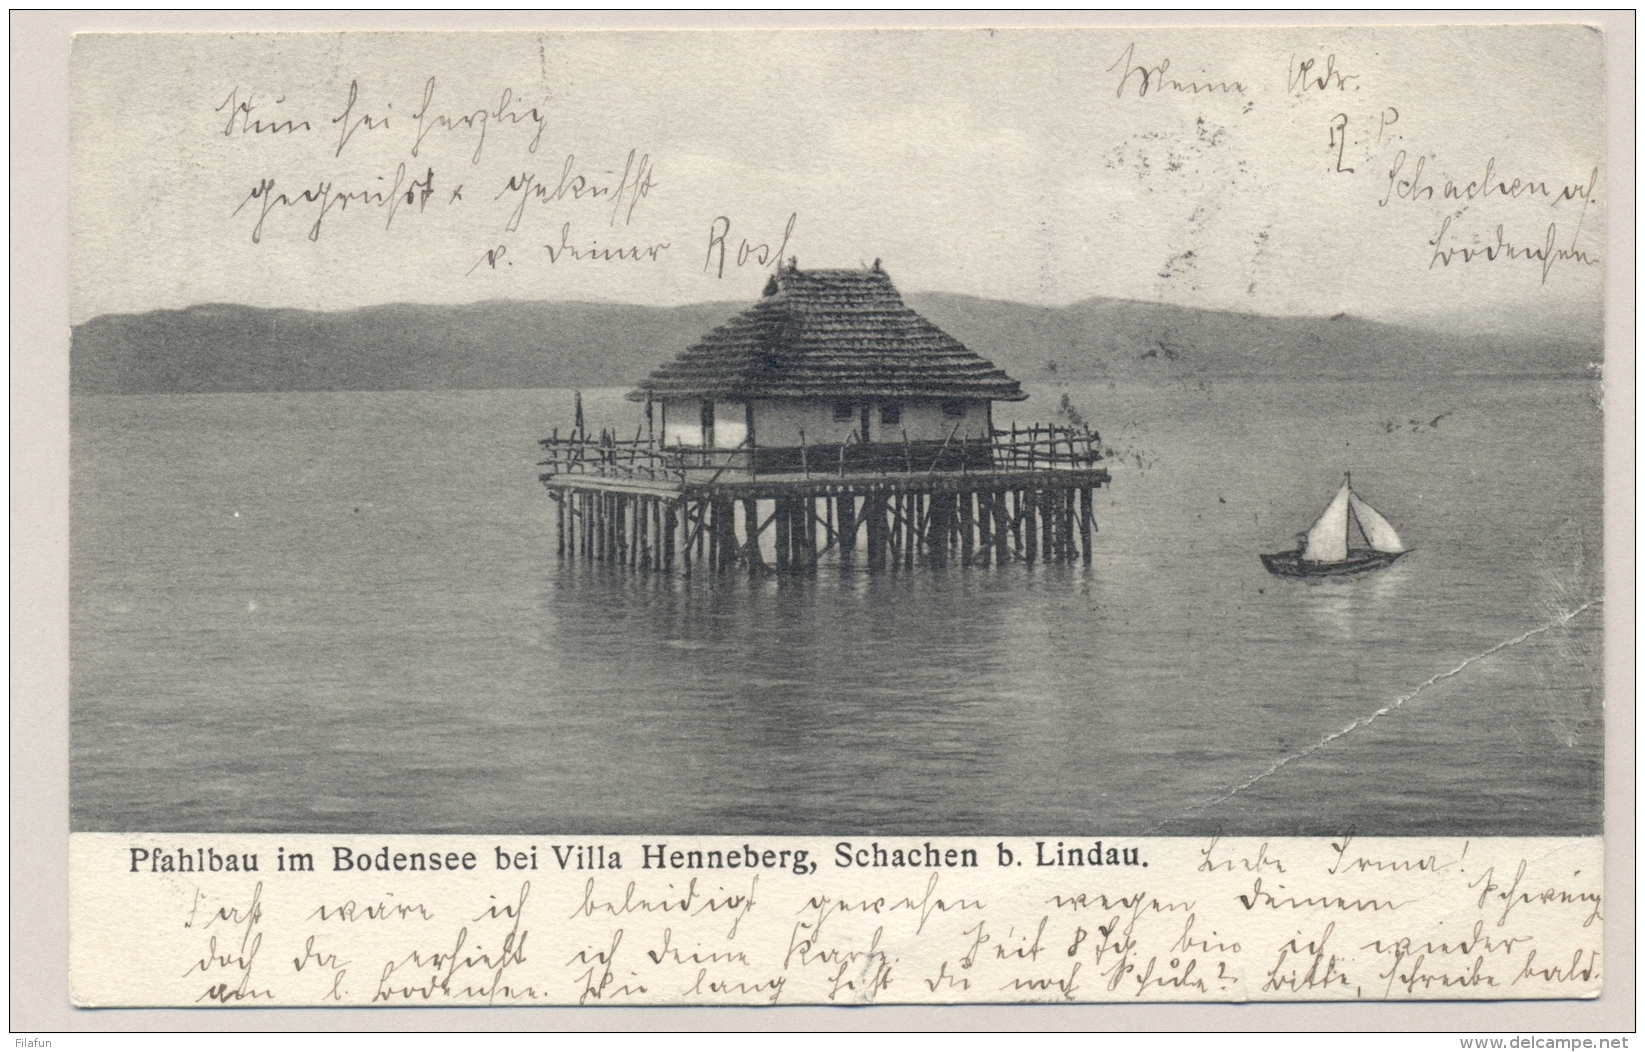 Nun sei herzlig
gegrüßt & geküßt
v. Deiner Rosl
Meine Adr.
R. P.
Schachen a/.
Bodensee
Pfahlbau im Bodensee bei Villa Henneberg, Schachen b. Lindau.
Liebe Irma!
Fast wäre ich beleidigt gewesen wegen Deinem Schweig
doch da erhielt ich Deine Karte. Seit 8 Tg. bin ich wieder
am l. Bodensee. Wie lang hast Du noch Schule? Bitte, schreibe bald.
Filafun
www.delcampe.net